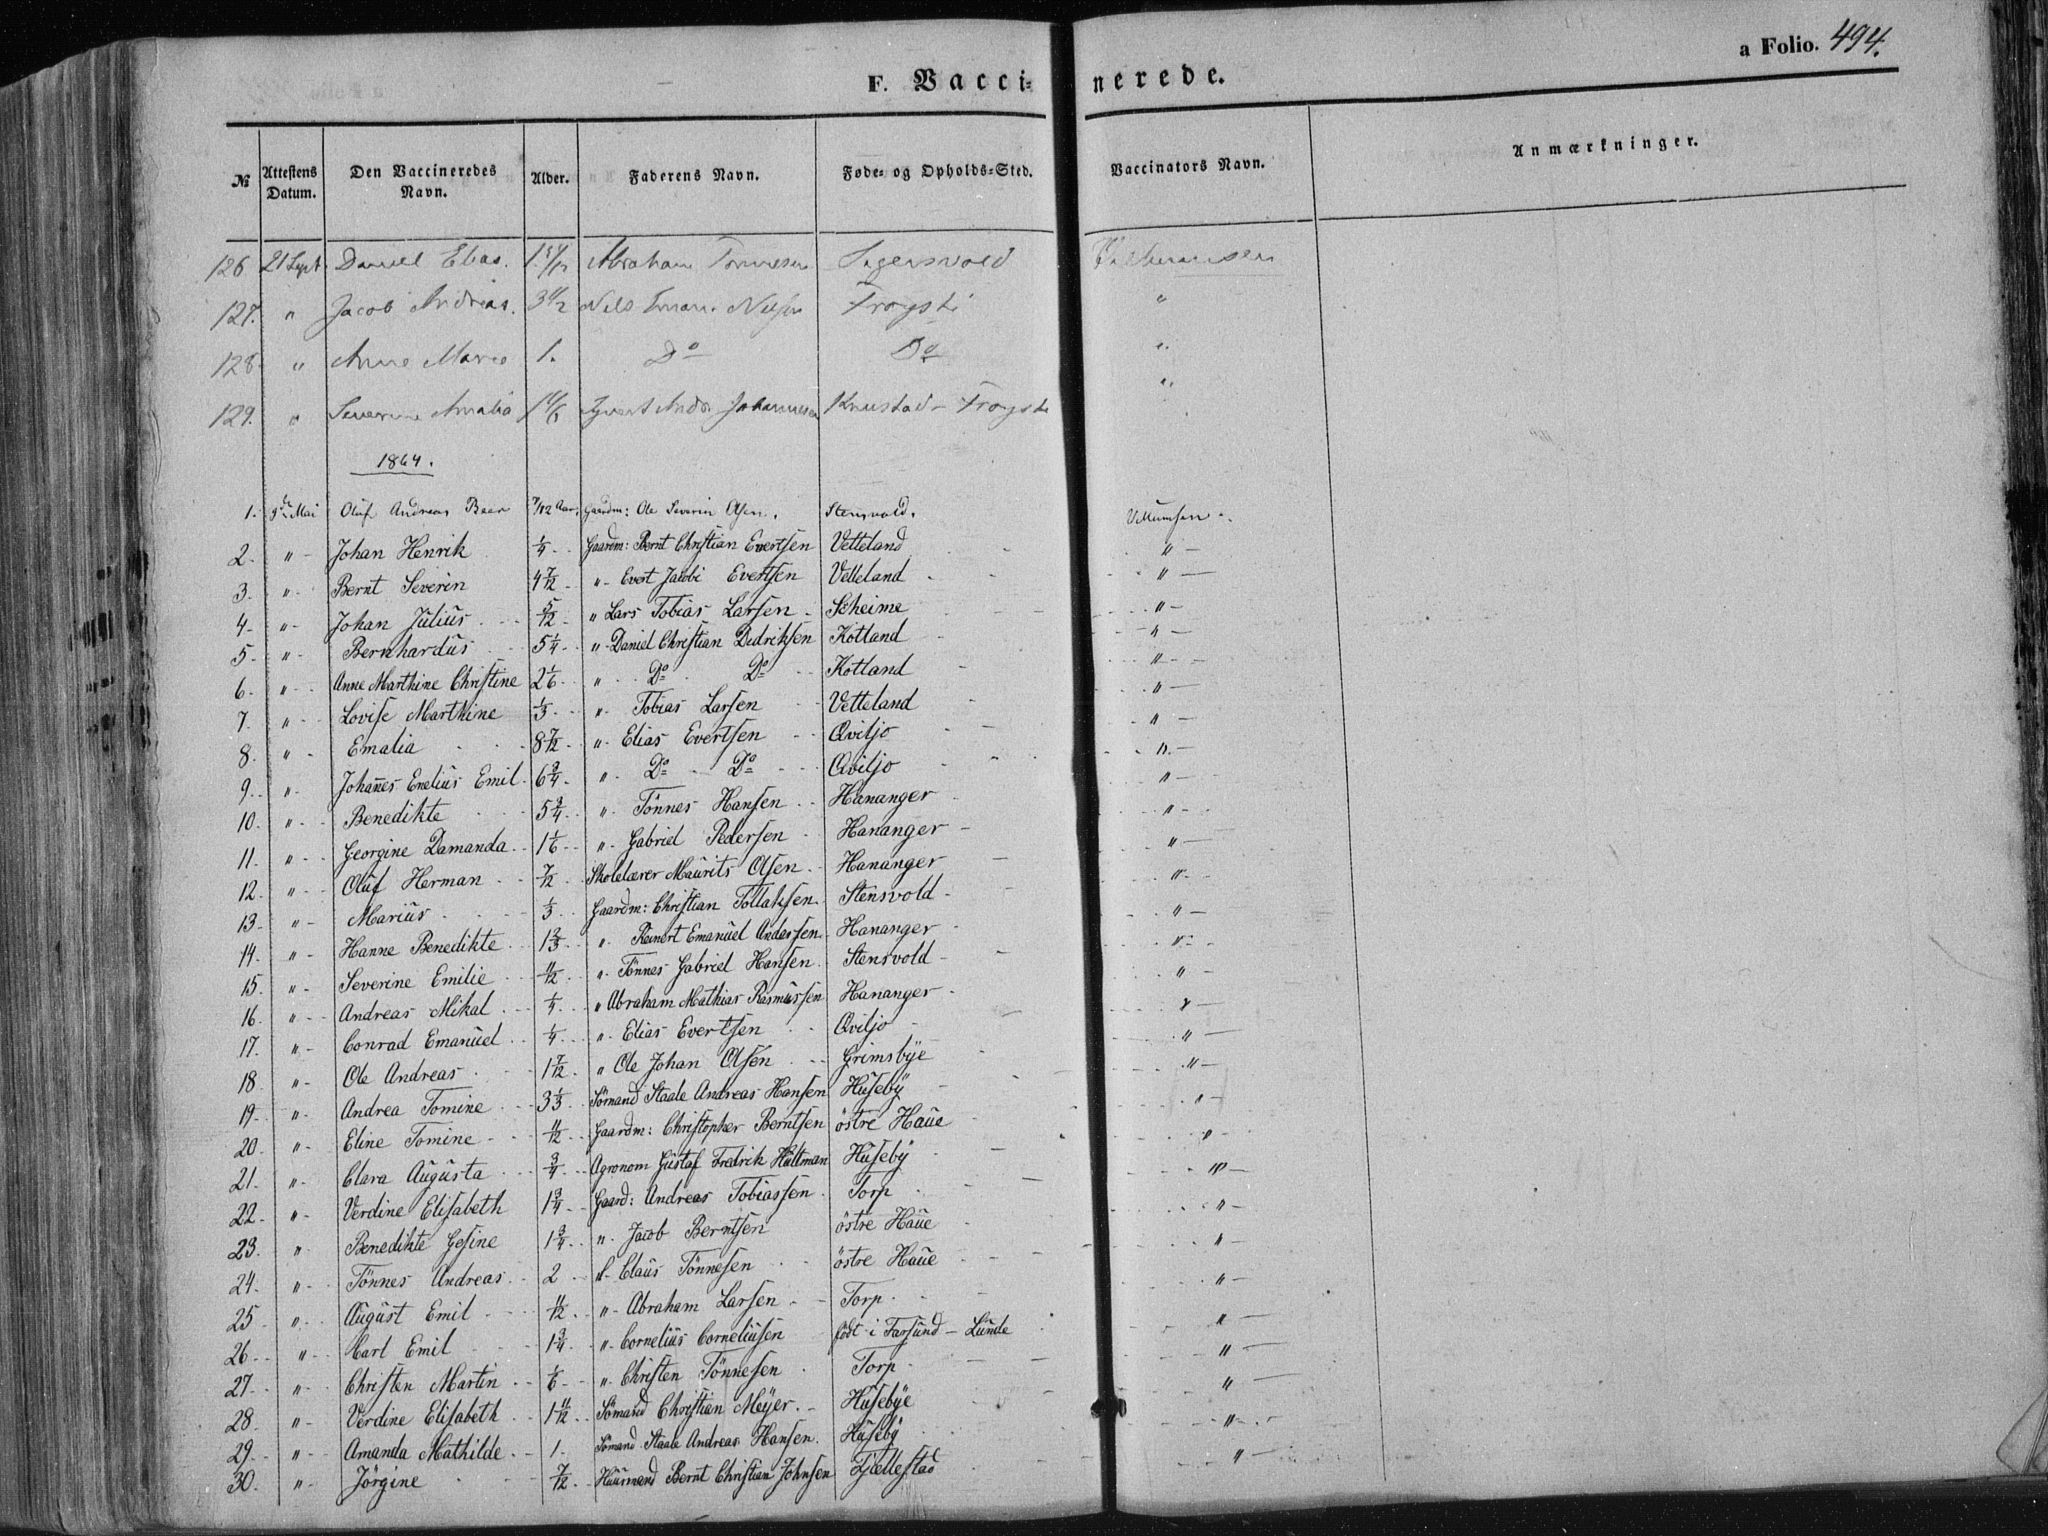 a Folio. 494.
F. Vaccinerede.
№ Attestens Datum. Den Vaccineredes Navn. Alder. Faderens Navn. Føde- og Opholds-Sted. Vaccinators Navn. Anmærkninger.
126 21 Sept. Daniel Elias. Abraham Tønnesen
127. " Jacob Andreas. 3 1/2 Nils Nilsen Frøysti "
128. " Anne Marie 1. Do Do "
129. " Severine Amalia Johannesen Knustad - "
1864.
1. 9de Mai Oluf Andreas Beer 7/12 Aar. Gaardm: Ole Severin Olsen. Stensvold. Villumsen
2. " Johan Henrik 1/4 Gaardm: Bernt Christian Evertsen Vetteland "
3. " Bernt Severin 4 7/12 " Evert Jacobi Evertsen Vetteland "
4. " Johan Julius 5/12 " Lars Tobias Larsen Scheime "
5. " Bernhardus 5 1/4 " Daniel Christian Didriksen Kotland "
6. " Anne Marthine Christine 2 1/6 " Do Do Kotland "
7. " Lovise Marthine 1/3 " Tobias Larsen Vetteland "
8. " Emalia 8 7/12 " Elias Evertsen Qviljo "
9. " Johañes Enelius Emil 6 3/4 " Do Do Qviljo "
10. " Benedikte 5 3/4 " Tönnes Hansen Hananger "
11. " Georgine Damanda 1 1/6 " Gabriel Pedersen Hananger "
12. " Oluf Herman 7/12 Skolelærer Maurits Olsen Hananger "
13. " Marius 1/3 Gaardm: Christian Tollaksen Stensvold "
14. " Hanne Benedikte 1 2/3 " Reinert Emanuel Anderssen Hananger "
15. " Severine Emilie 11/12 " Tönnes Gabriel Hansen Stensvold "
16. " Andreas Mikal 1/4 " Abraham Mathias Rasmussen Hananger "
17. " Conrad Emanuel 1/4 " Elias Evertsen Qviljo "
18. " Ole Andreas 1 7/12 " Ole Johan Olsen Grimsbye "
19. " Andrea Tomine 3 1/3 Sömand Staale Andreas Hansen Huseby "
20. " Eline Tomine 11/12 Gaardm: Christopher Berntsen östre Haue "
21. " Clara Augusta 3/4 Agronom Gustaf Fredrik Hultman Huseby "
22. " Verdine Elisabeth 1 3/4 Gaard: Andreas Tobiassen Torp "
23. " Benedikte Gesine 1 3/4 " Jacob Berntsen östre Haue "
24. " Tönnes Andreas 2 " Claus Tönnesen östre Haue "
25. " August Emil 11/12 " Abraham Larsen Torp "
26. " Karl Emil 1 3/4 " Cornelius Corneliusen födt i Farsund - Lunde "
27. " Christen Martin 1/6 " Christen Tönnesen Torp "
28. " Verdine Elisabeth 1 11/12 Sömand Christian Meyer Husebye "
29. " Amanda Mathilde 1 Sömand Staale Andreas Hansen Huseby "
30. " Jörgine 7/12 Huusmand Bernt Christian Johnsen Fjellestad "